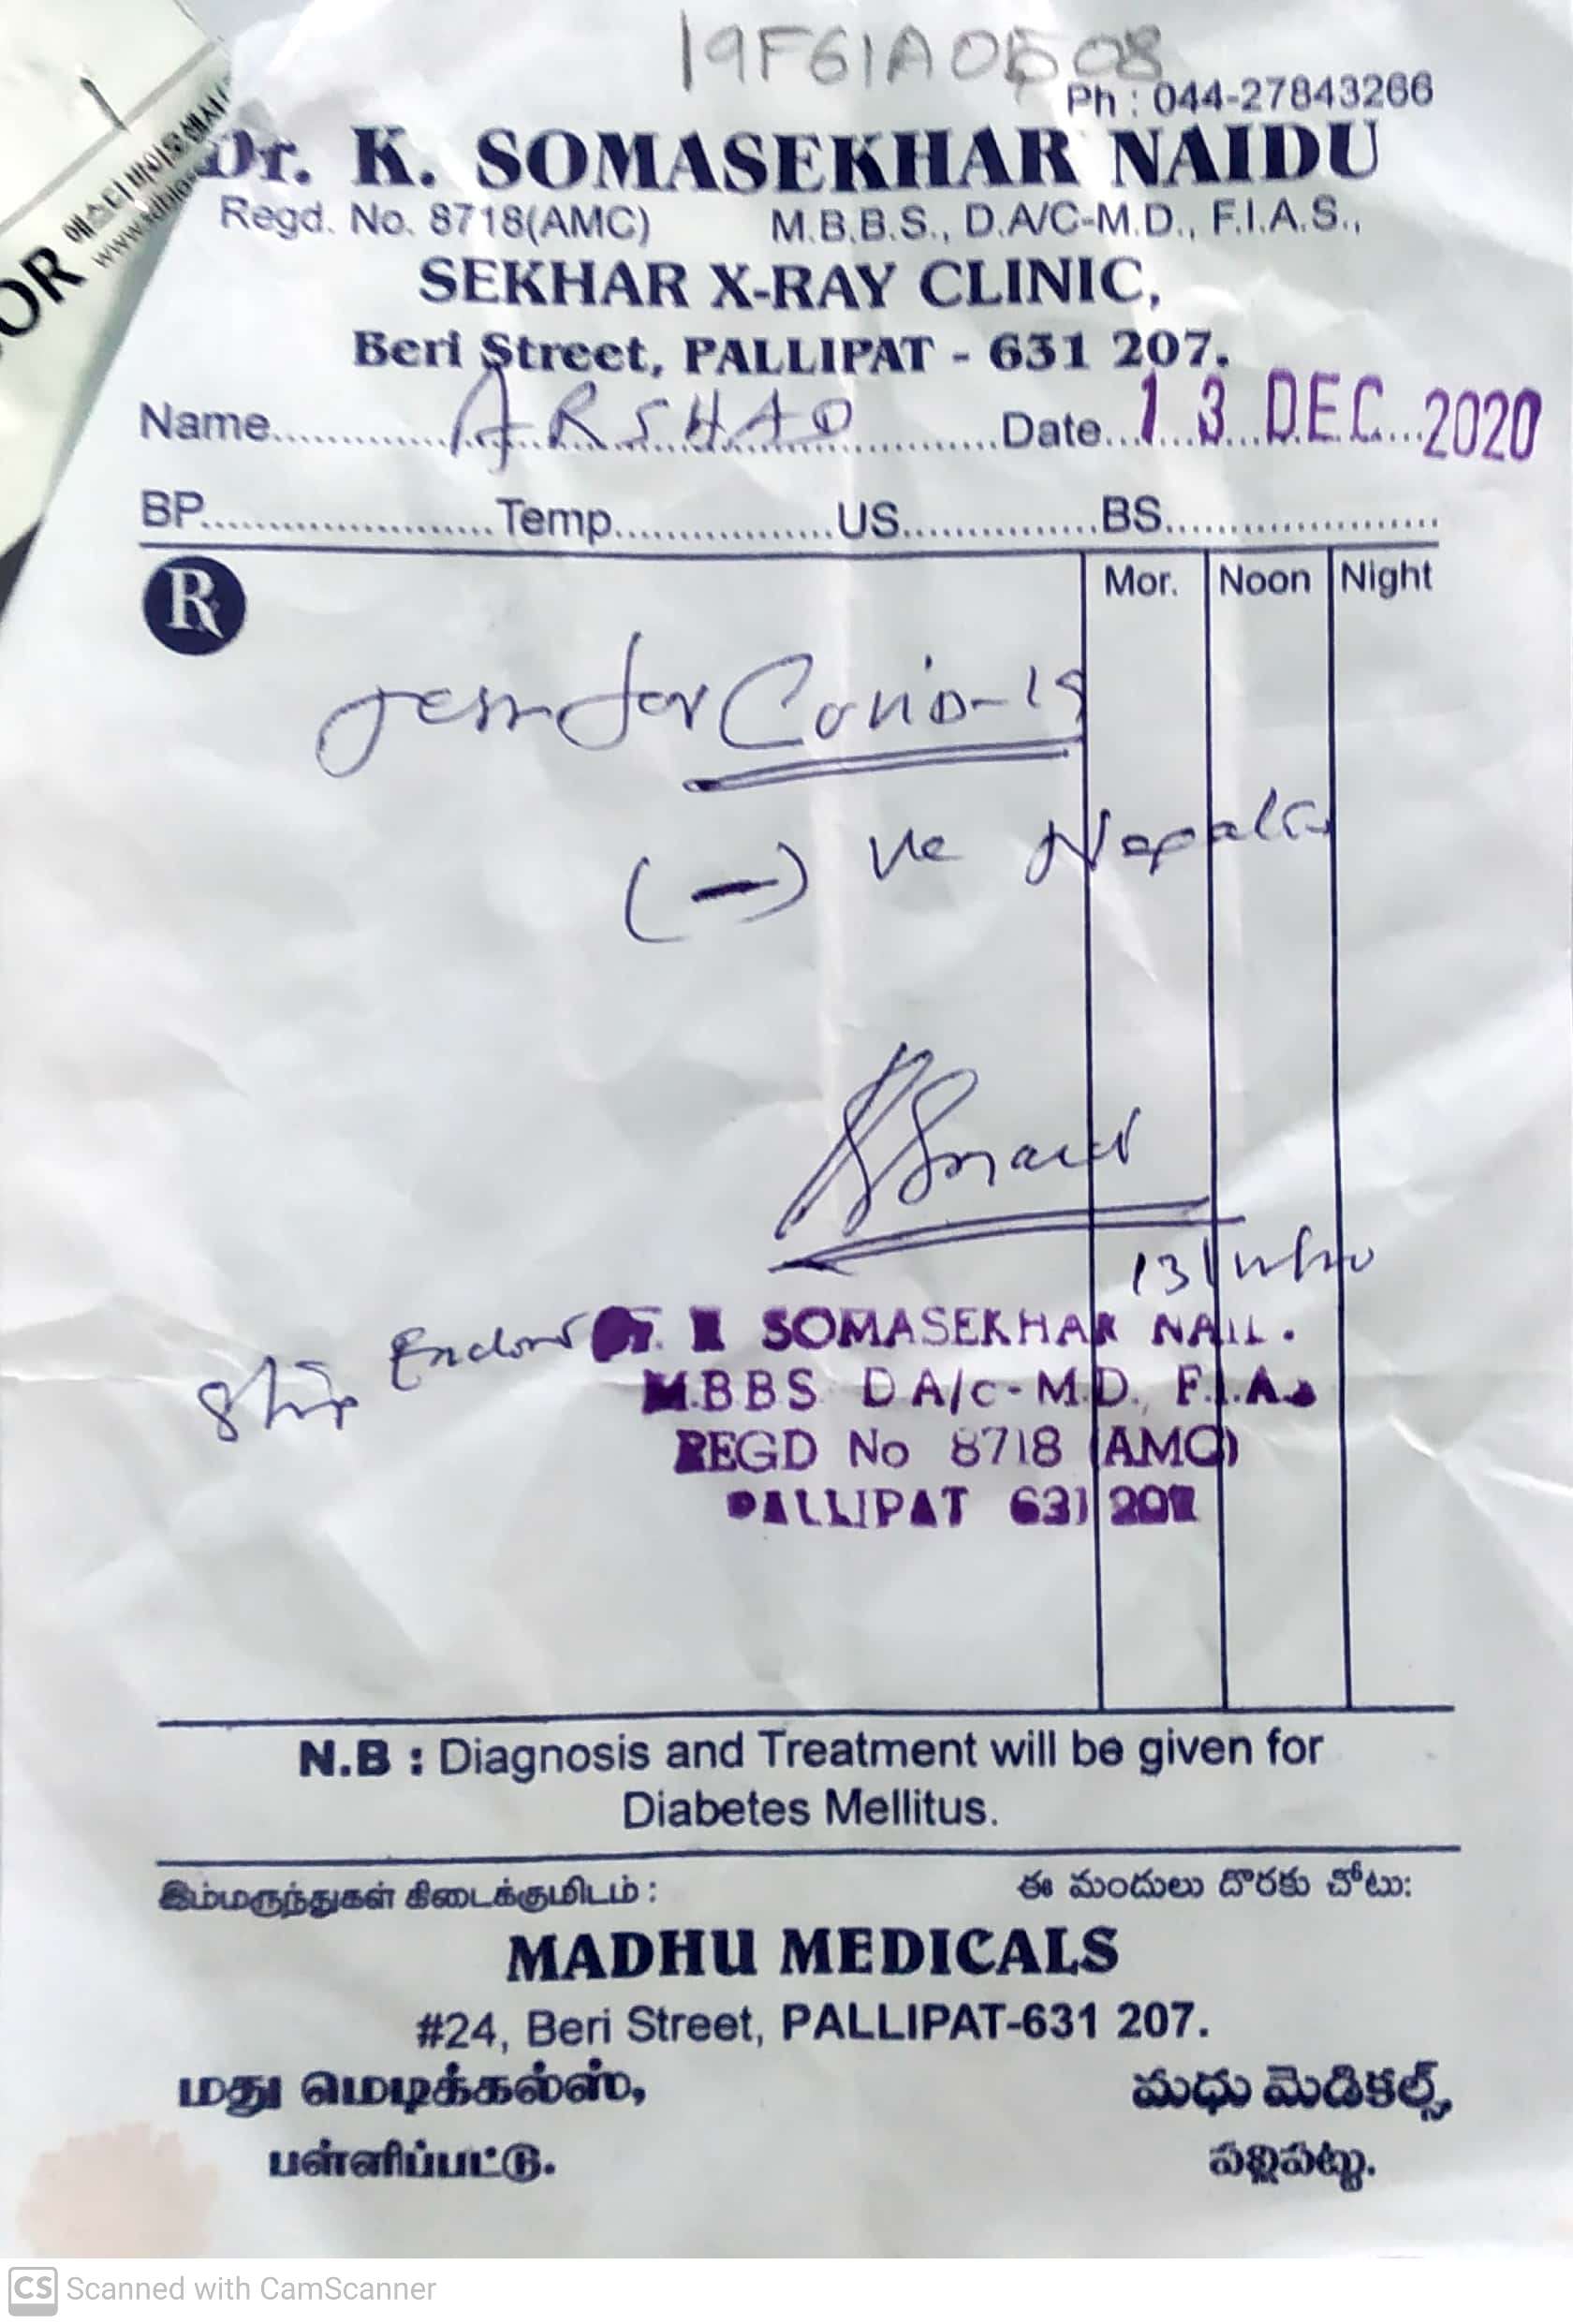 19F61A0508
Ph : 044-27843266
Dr. K. SOMASEKHAR NAIDU
Regd. No. 8718(AMC) M.B.B.S., D.A/C-M.D., F.I.A.S.,
SEKHAR X-RAY CLINIC,
Beri Street, PALLIPAT - 631 207.
Name ARSHAD Date 13 DEC 2020
BP Temp US BS
R Mor. Noon Night
for Covid-19
(-) ve
Dr. K SOMASEKHAR
M.BBS DA/c-M.D., F.I.A.
REGD No 8718 (AMC)
PALLIPAT 631 207
N.B : Diagnosis and Treatment will be given for
Diabetes Mellitus.
இம்மருந்துகள் கிடைக்குமிடம் : ఈ మందులు దొరకు చోటు:
MADHU MEDICALS
#24, Beri Street, PALLIPAT-631 207.
மது மெடிக்கல்ஸ், మధు మెడికల్స్,
பள்ளிப்பட்டு. పల్లిపట్టు.
OR 에스디바이오센서
CS Scanned with CamScanner